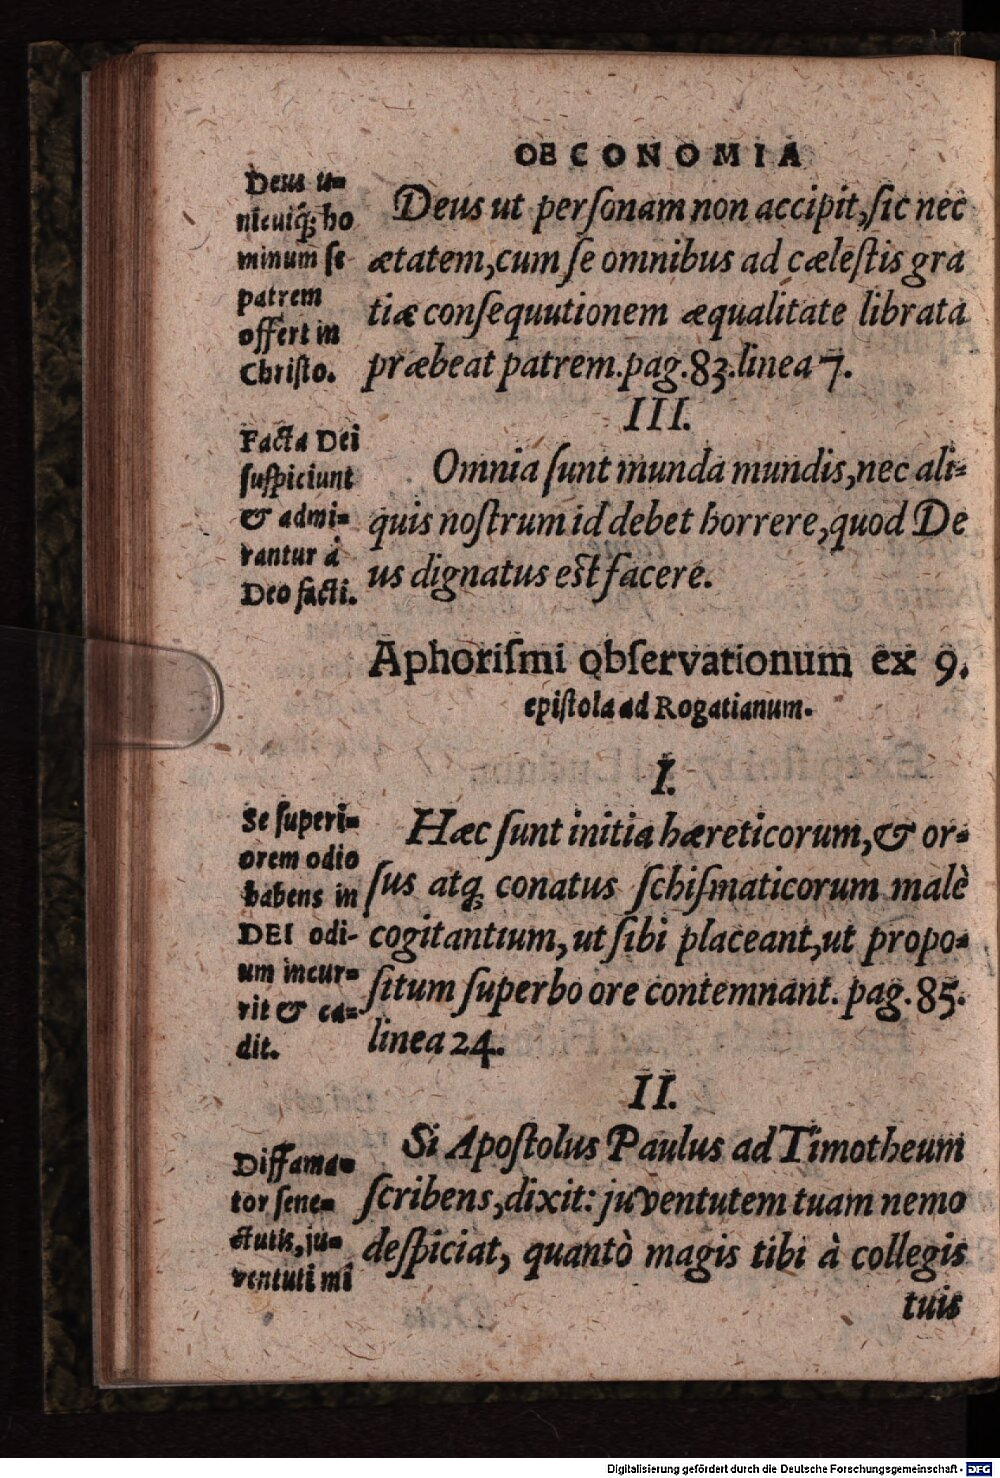 OECONOMIA
Deus u-
nicuiq́; ho
minum se
patrem
offert in
Christo.
Deus ut perſonam non accipit, ſic nec
ætatem, cum ſe omnibus ad cæleſtis gra
tiæ conſequutionem æqualitate librata
præbeat patrem. pag. 83. linea 7.
III.
Facta Dei
ſuſpiciunt
& admi-
rantur à
Deo facti.
Omnia ſunt munda mundis, nec ali-
quis noſtrum id debet horrere, quod De
us dignatus eſt facere.
Aphoriſmi obſervationum ex 9.
epiſtola ad Rogatianum.
I.
Se ſuperi-
orem odio
habens in
DEI odi-
um incur-
rit & ca-
dit.
Hæc ſunt initia hæreticorum, & or-
ſus atq; conatus ſchiſmaticorum malè
cogitantium, ut ſibi placeant, ut propo-
ſitum ſuperbo ore contemnant. pag. 85.
linea 24.
II.
Diffama-
tor ſene-
ctutis, ju-
ventuti mi
Si Apoſtolus Paulus ad Timotheum
ſcribens, dixit: juventutem tuam nemo
deſpiciat, quantò magis tibi à collegis
tuis
Digitalisierung gefördert durch die Deutsche Forschungsgemeinschaft - DFG